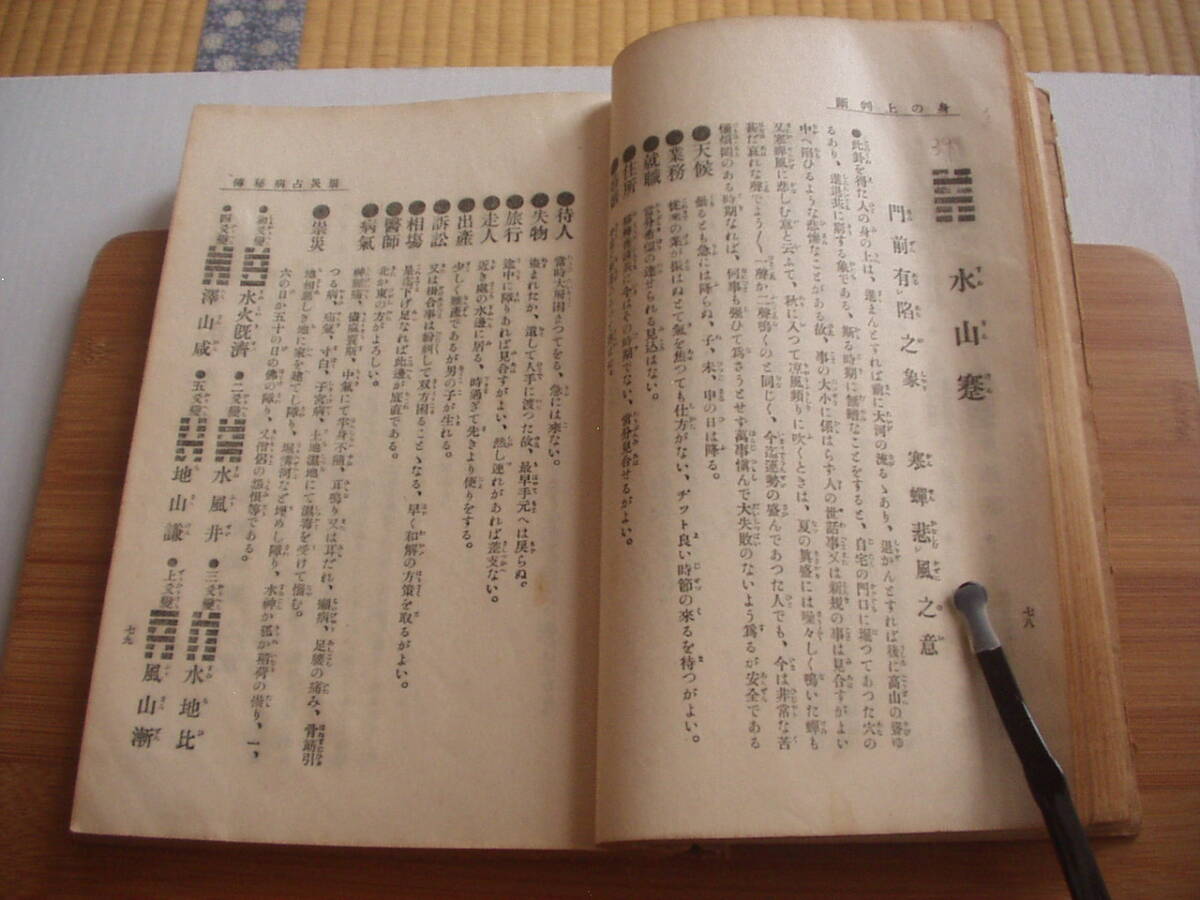 身の上判斷
水山蹇
門前有陷之象
寒蟬悲風之意
●此卦を得た人の身の上は、進まんとすれば前に大河の流るゝあり、退かんとすれば後に高山の聳ゆ
るあり、進退共に窮する象である、斯る時期に無暗なことをすると、自宅の門口に堀つてあつた穴の
中へ陷ひるような悲慘なことがある故、事の大小に係はらず人の世話事又は新規の事は見合すがよい
又寒蟬風に悲しむ意と云ふて、秋に入つて凉風頻りに吹くときは、夏の眞盛には喧々しく鳴いた蟬も
甚だ哀れな聲でようく、一聲か二聲鳴くのと同じく、今迄運勢の盛んであつた人でも、今は非常な苦
惱煩悶のある時期なれば、何事も强ひて爲さうとせず萬事愼んで大失敗のないよう爲るが安全である
●天候 曇るとも急には降らぬ、子、未、申の日は降る。
●業務 從來の業が振はぬとて氣を焦つても仕方がない、ヂット良い時節の來るを待つがよい。
●就職 當分希望の達せられる見込はない。
●住所 今はその時期でない、當分見合せるがよい。
七八
屠災占病秘傳
●待人 當時大層困まつてをる、急には來ない。
●失物 盗まれたか、遺して人手に渡つた故、最早手元へは戻らぬ。
●旅行 途中に障りあれば見合すがよい、然し連れがあれば差支ない。
●走人 近き處の水邊に居る、時過ぎて先きより便りをする。
●出產 少しく難產であるが男の子が生れる。
●訴訟 又は掛合事は紛糾して双方困ることゝなる、早く和解の方策を取るがよい。
●相場 是迄下げ足なれば此邊が底直である。
●醫師 北か東の方がよろしい。
●病氣 中氣にて半身不隨、耳鳴り又は耳だれ、癪病、足腰の痛み、骨筋引
つる病、疝氣、寸白、子宮病、土地濕地にて濕毒を受けて惱む。
●祟災 地相惡しき地に家を建てし障り、堀溝河など埋めし障り、水神か狐か稻荷の祟り、一、
六の日か五十の日の佛の障り、又僧侶の怨恨等である。
●初爻變 水火旣濟
●二爻變 水風井
●三爻變 水地比
●四爻變 澤山咸
●五爻變 地山謙
●上爻變 風山漸
七九